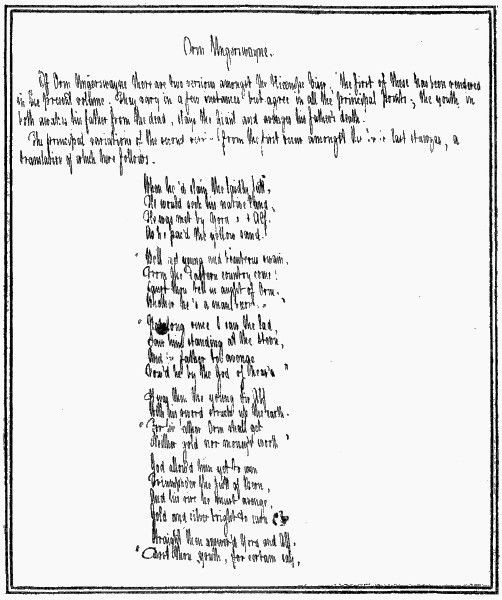 Orm Ungerswayne.
Of Orm Ungerswayne there are two versions amongst the Kiæmpe Viser; the first of these has been rendered
in the present volume. They vary in a few instances but agree in all the principal points; the youth in
both awakes his father from the dead, slays the giant and avenges his father's death.
The principal variations of the second from the first occur amongst the last stanzas, a
translation of which here follows.
When he'd slain the loathly
He would seek his native land,
He was met by Gern Alf
As he pac'd the yellow sand.
" Well met young and wondrous swain,
From the Eastern country come!
Canst thou tell us aught of Orm,
Whether he's a
" Not long since I saw the lad,
Saw him standing at the stern,
And his father to avenge
Vow'd he by the God of
It was then the young Sir Alf
With his sword struck up the earth.
" For his father Orm shall get
Neither gold nor money's worth "
God allow'd him yet to win
Triumph o'er the
And his sire he must avenge,
Gold and silver bright to
Straight then answer'd Gern and Alf.
" Canst thou, youth, for certain say,